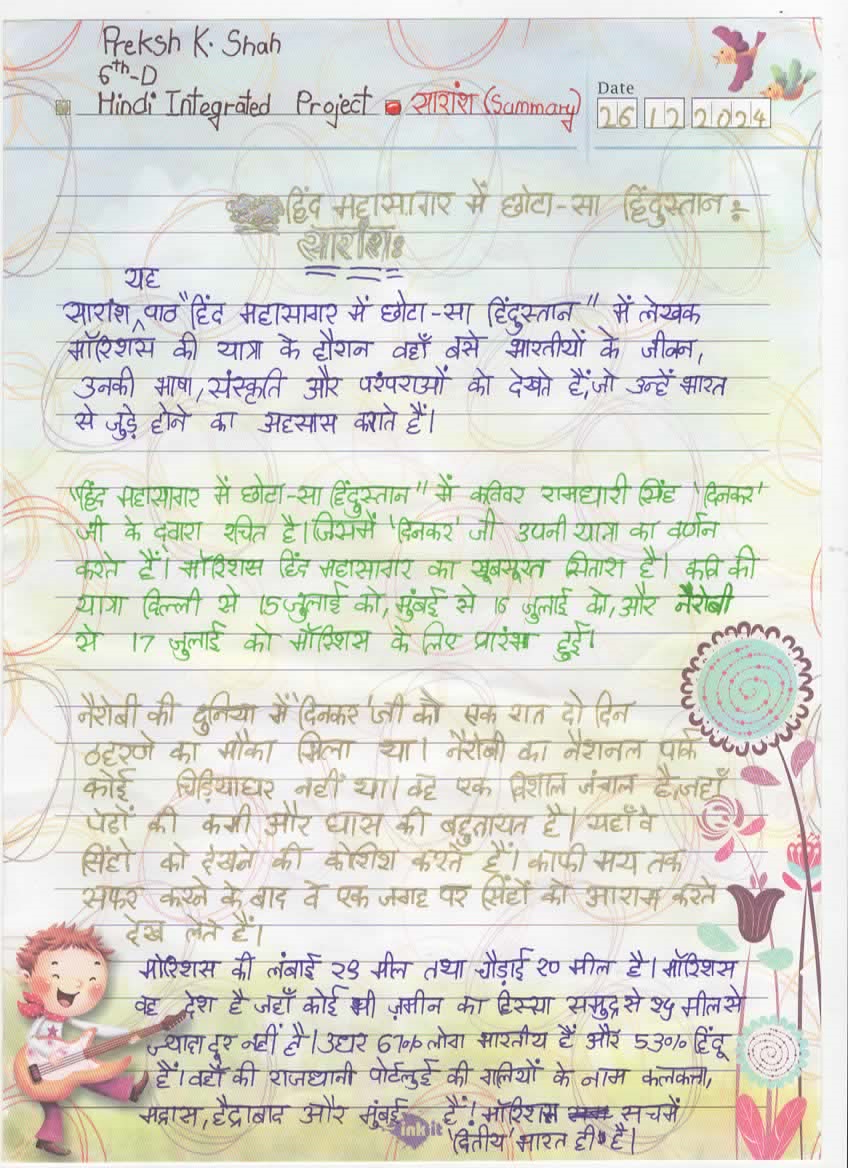 Preksh K. Shah
6th-D
Hindi Integrated Project सारांश (Summary)
Date
26 12 2024
हिंद महासागर में छोटा-सा हिंदुस्तान :-
सारांश:
यह
सारांश पाठ "हिंद महासागर में छोटा-सा हिंदुस्तान" में लेखक
मॉरिशस की यात्रा के दौरान वहाँ बसे भारतीयों के जीवन,
उनकी भाषा, संस्कृति और परंपराओं को देखते हैं, जो उन्हें भारत
से जुड़े होने का अहसास कराते हैं।
"हिंद महासागर में छोटा-सा हिंदुस्तान" में कविवर रामधारी सिंह 'दिनकर'
जी के दवारा रचित है। जिसमें 'दिनकर' जी उपनी यात्रा का वर्णन
करते हैं। मॉरिशस हिंद महासागर का खूबसूरत सितारा है। कवि की
यात्रा दिल्ली से 15 जुलाई को, मुंबई से 16 जुलाई को, और नैरोबी
से 17 जुलाई को मॉरिशस के लिए प्रारंभ हुई।
नैरोबी की दुनिया में 'दिनकर' जी को एक रात दो दिन
ठहरणे का मौका मिला था। नैरोबी का नैशनल पार्क
कोई चिड़ियाघर नहीं था। वह एक विशाल जंगल है, जहाँ
पेडों की कमी और घास की बहुतायत है। यहाँ वे
सिंहों को देखने की कोशिश करते हैं। काफी मय तक
सफर करने के बाद वे एक जगह पर सिंहों को आराम करते
देख लेते हैं।
मोरिशस की लंबाई २९ मील तथा चौड़ाई २० मील है। मॉरिशस
वह देश है जहाँ कोई भी ज़मीन का हिस्सा समुद्र से १५ मील से
ज्यादा दूर नहीं है। उधर 67% लोग भारतीय हैं और 53% हिंदू
हैं। वहाँ की राजधानी पोर्टलुई की गलियों के नाम कलकत्ता,
मद्रास, हैद्राबाद और मुंबई हैं। मॉरिशस सचमें
'दितीय' भारत ही है।
inkit